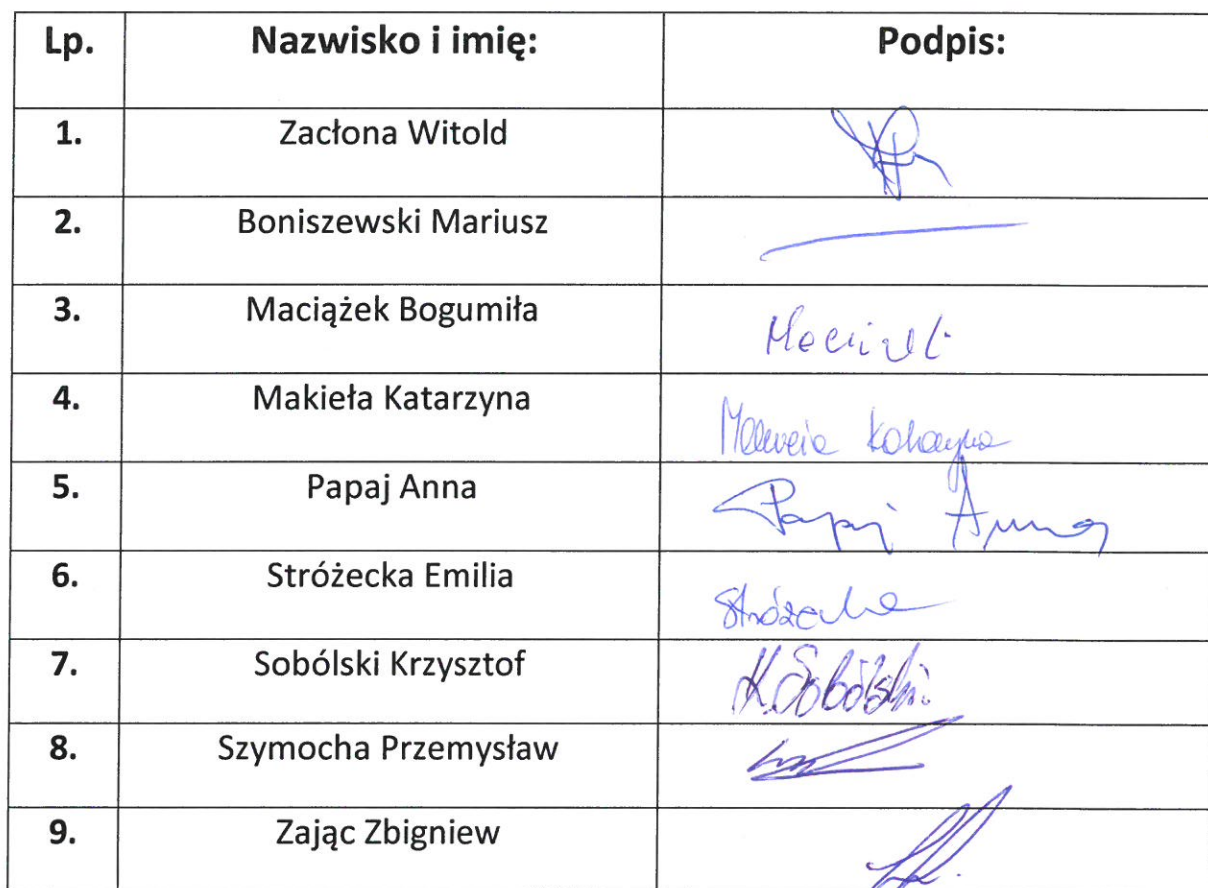 Lp. Nazwisko i imię: Podpis:
1. Zacłona Witold
2. Boniszewski Mariusz
3. Maciążek Bogumiła
4. Makieła Katarzyna
5. Papaj Anna Papaj Anna
6. Stróżecka Emilia Stróżecka
7. Sobólski Krzysztof K. Sobólski
8. Szymocha Przemysław
9. Zając Zbigniew